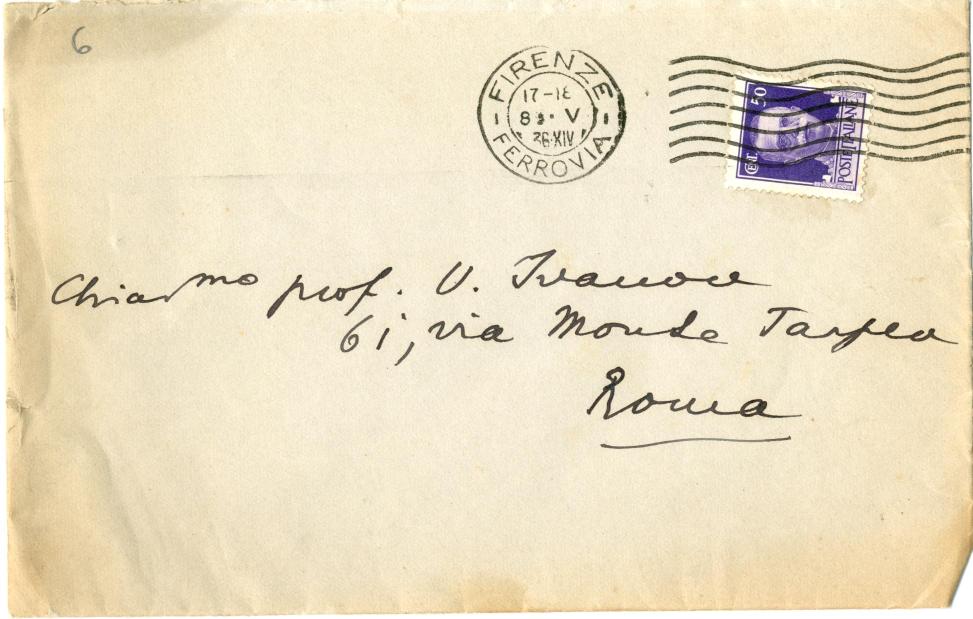 6
FIRENZE
17-18
8 · V
36·XIV
FERROVIA
CENT. 50
POSTE ITALIANE
Chiar mo prof. V. Ivanow
61, via Monte Tarpeo
Roma